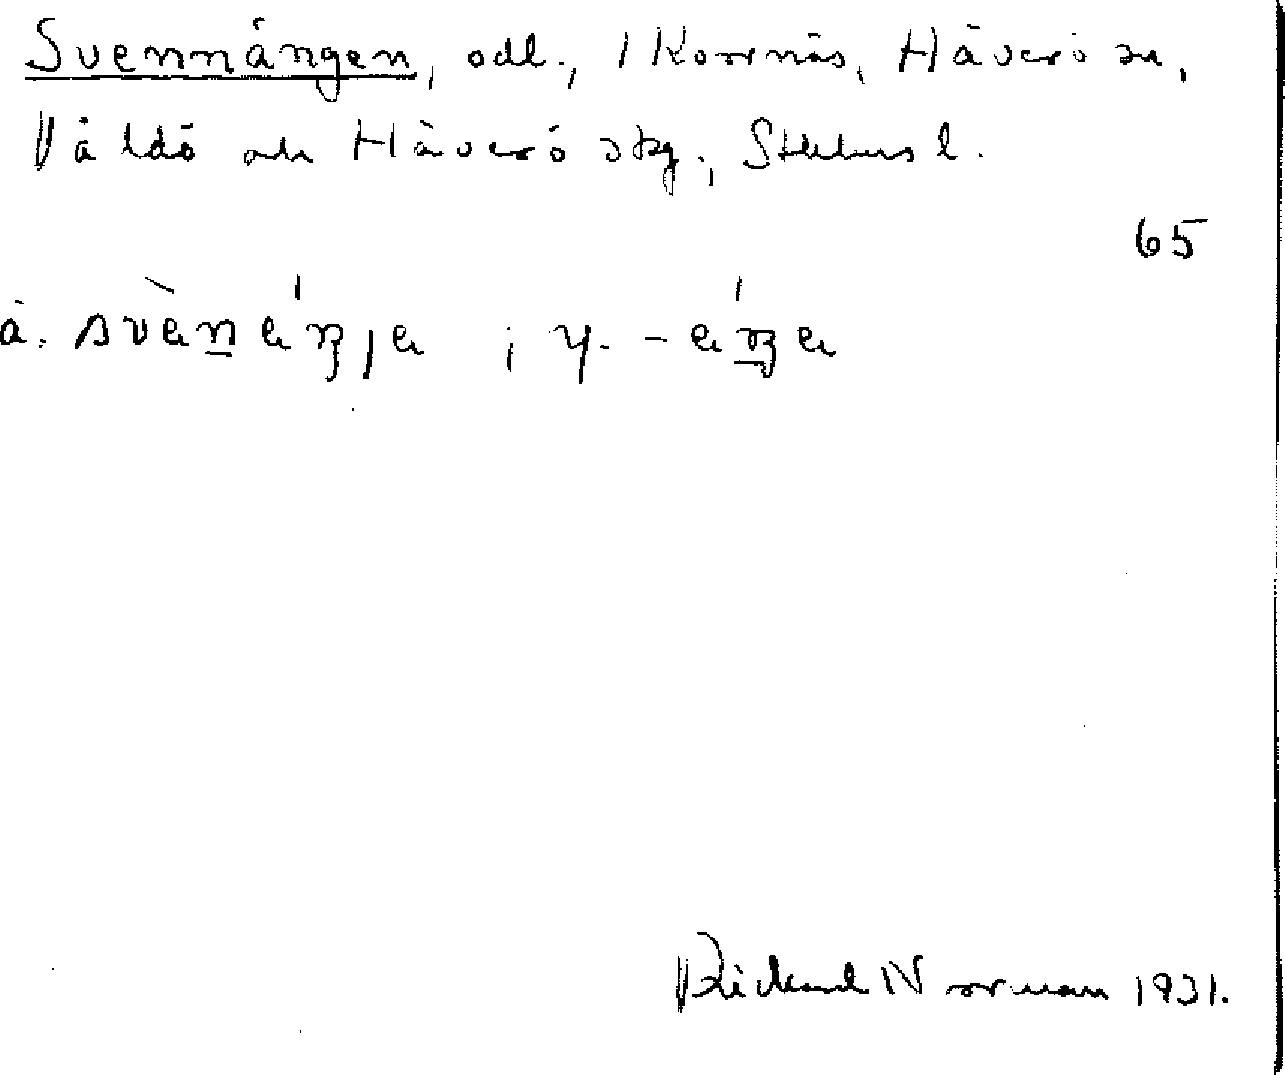 Svennängen, odl., i Kornäs, Häverö sn,
Väddö och Häverö skg, Sthlms l.
65
ä. svènéŋjɐ ; y. -éŋɐ
Rickard Norman 1931.